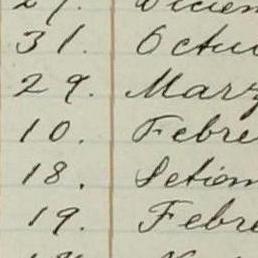 31. Octu
29. Marz
10. Febre
18. Setiem
19. Febre